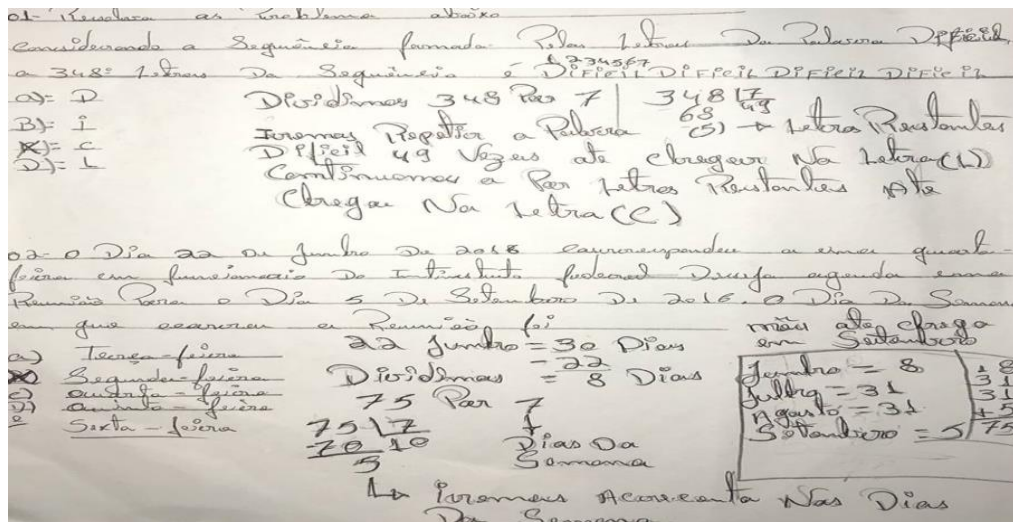 01- Resolva os Problema abaixo
considerando a Sequência formada Pelas Letras Da Palavra Dificil
a 348ª Letra Da Sequência é DIFICIL DIFICIL DIFICIL DIFICIL
1234567
a)= D
B)= i
X)= C
D)= L
Dividimos 348 Por 7
348 7
68 49
(5) → Letras Restantes
Iremos Repetir a Palavra
Dificil 49 Vezes ate chegar Na Letra (L)
Continuamos a Por Letras Restantes Ate
Chegar Na Letra (C)
02- O Dia 22 De Junho De 2016 correspondeu a uma quarta-
feira em funcionario Do Instituto federal Deseja agenda uma
Reunião Para o Dia 5 De Setembro De 2016. O Dia Da Semana
em que ocorreu a Reunião foi
a) Terça-feira
X) Segunda-feira
c) quarta-feira
D) quinta-feira
e Sexta-feira
22 Junho = 30 Dias
- 22
= 8 Dias
Dividimos
75 Por 7
75 7
-70 10
5
Dias Da
Semana
↳ iremos Acrescenta Nas Dias
Da Semana
mês ate chega
em Setembro
Junho = 8
Julho = 31
Agosto = 31
Setembro = 5
+ 8
31
31
+ 5
75